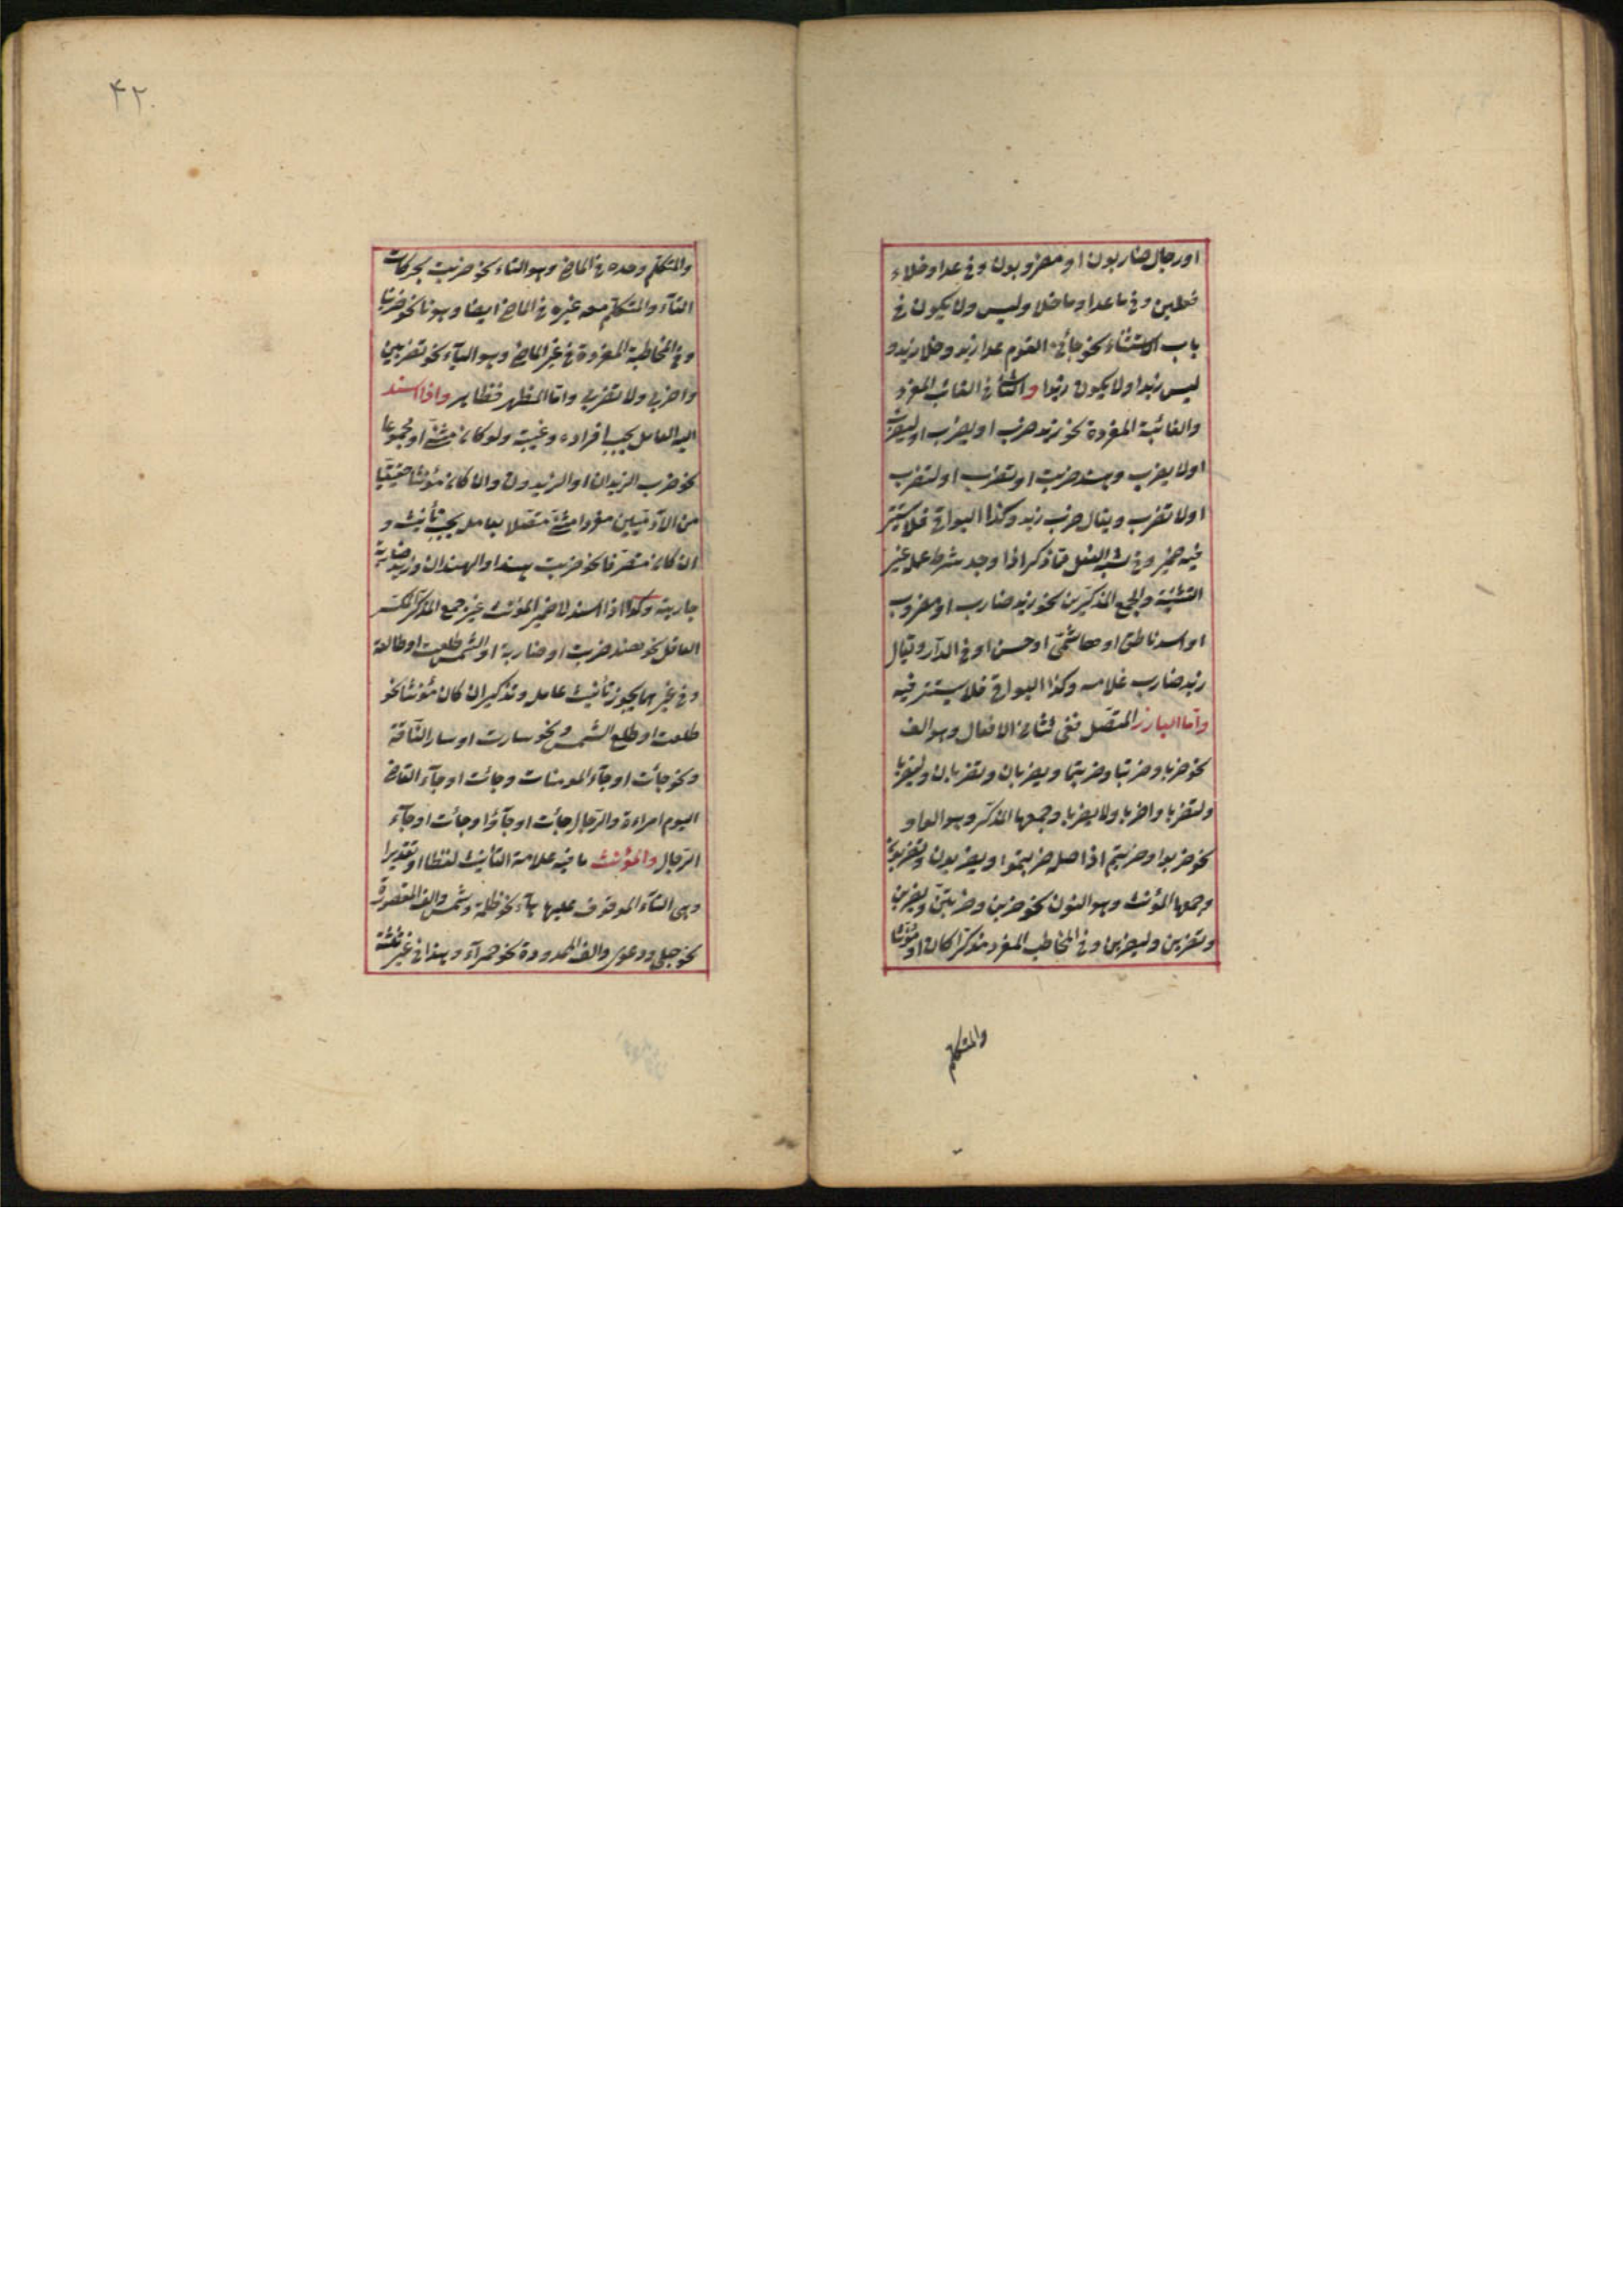 او رجال ضاربون او مضروبون وفى عدا وخلاء
فعلين وفى ما عدا وما خلا وليس ولا يكون فى
باب الاستثناء نحو جائنى القوم عدا زيد وخلا زيد و
ليس زيدا ولا يكون زيدا والثانى فى الغائب المفرد
والغائبة المفردة نحو زيد ضرب او يضرب او ليضرب
او لا يضرب وهند ضربت او تضرب او لتضرب
او لا تضرب ويقال ضرب زيد وكذا البواقى فلا يستتر
فيه ضمير وفى شبه الفعل مما ذكر اذا وجد شرط عمل غير
التثنية والجمع المذكرين نحو زيد ضارب او مضروب
او اسد ناطق او هاشمىّ او حسن او فى الدار ويقال
زيد ضارب غلامه وكذا البواقى فلا يستتر فيه
وامّا البارز المتصّل ففى تثنا الافعال وهو الف
نحو ضربا وضربتا وضربتما ويضربان وتضربان وليضربا
ولتضربا واضربا ولا يضربا وجمعها المذكر وهو الواو
نحو ضربوا وضربتم اذ اصله ضربتموا ويضربون وتضربون
وجمعها المؤنث وهو النون نحو ضربن وضربتنّ ويضربن
وتضربن وليضربن وفى المخاطب المفرد مذكرا كان او مؤنثا
والمتكلم
۴۲
والمتكلم وحده فى الماضى وهو التاء نحو ضربت بحركات
التآء والمتكلم معه غيره فى الماضى ايضا وهو نا نحو ضربنا
وفى المخاطبة المفردة فى غير الماضى وهو اليآء نحو تضربين
واضربى ولا تضربى وامّا المظهر فظاهر واذا اسند
اليه العامل يجب افراده وغيبته ولو كان مثنى او مجموعا
نحو ضرب الزيدان او الزيدون وان كان مؤنثا حقيقيّا
من الآدميين مفردا او مثنى متصّلا بعامله يجب تأنيثه و
ان كان متصرفا نحو ضربت هند او الهندان وزيد ضاربة
جاريته وكذا اذا اسند الى ضمير المؤنث غير جمع المذكر المكسّر
العاقل نحو هند ضربت او ضاربة او الشمس طلعت او طالعة
وفى غيرهما يجوز تأنيث عامله وتذكيره ان كان مؤنثا نحو
طلعت او طلع الشمس ونحو سارت او سار الناقة
ونحو جائت او جآء المومنات وجائت او جآء القاضى
اليوم امراءة والرّجال جائت او جآؤا وجائت او جآء
الرّجال والمؤنث ما فيه علامة التأنيث لفظا او تقديرا
وهى التآء الموقوف عليها هآء نحو ظلمة وشمس والف المقصورة
نحو حبلى ودعوى والف الممدودة نحو حمرآء وهذا فى غير ثلثة